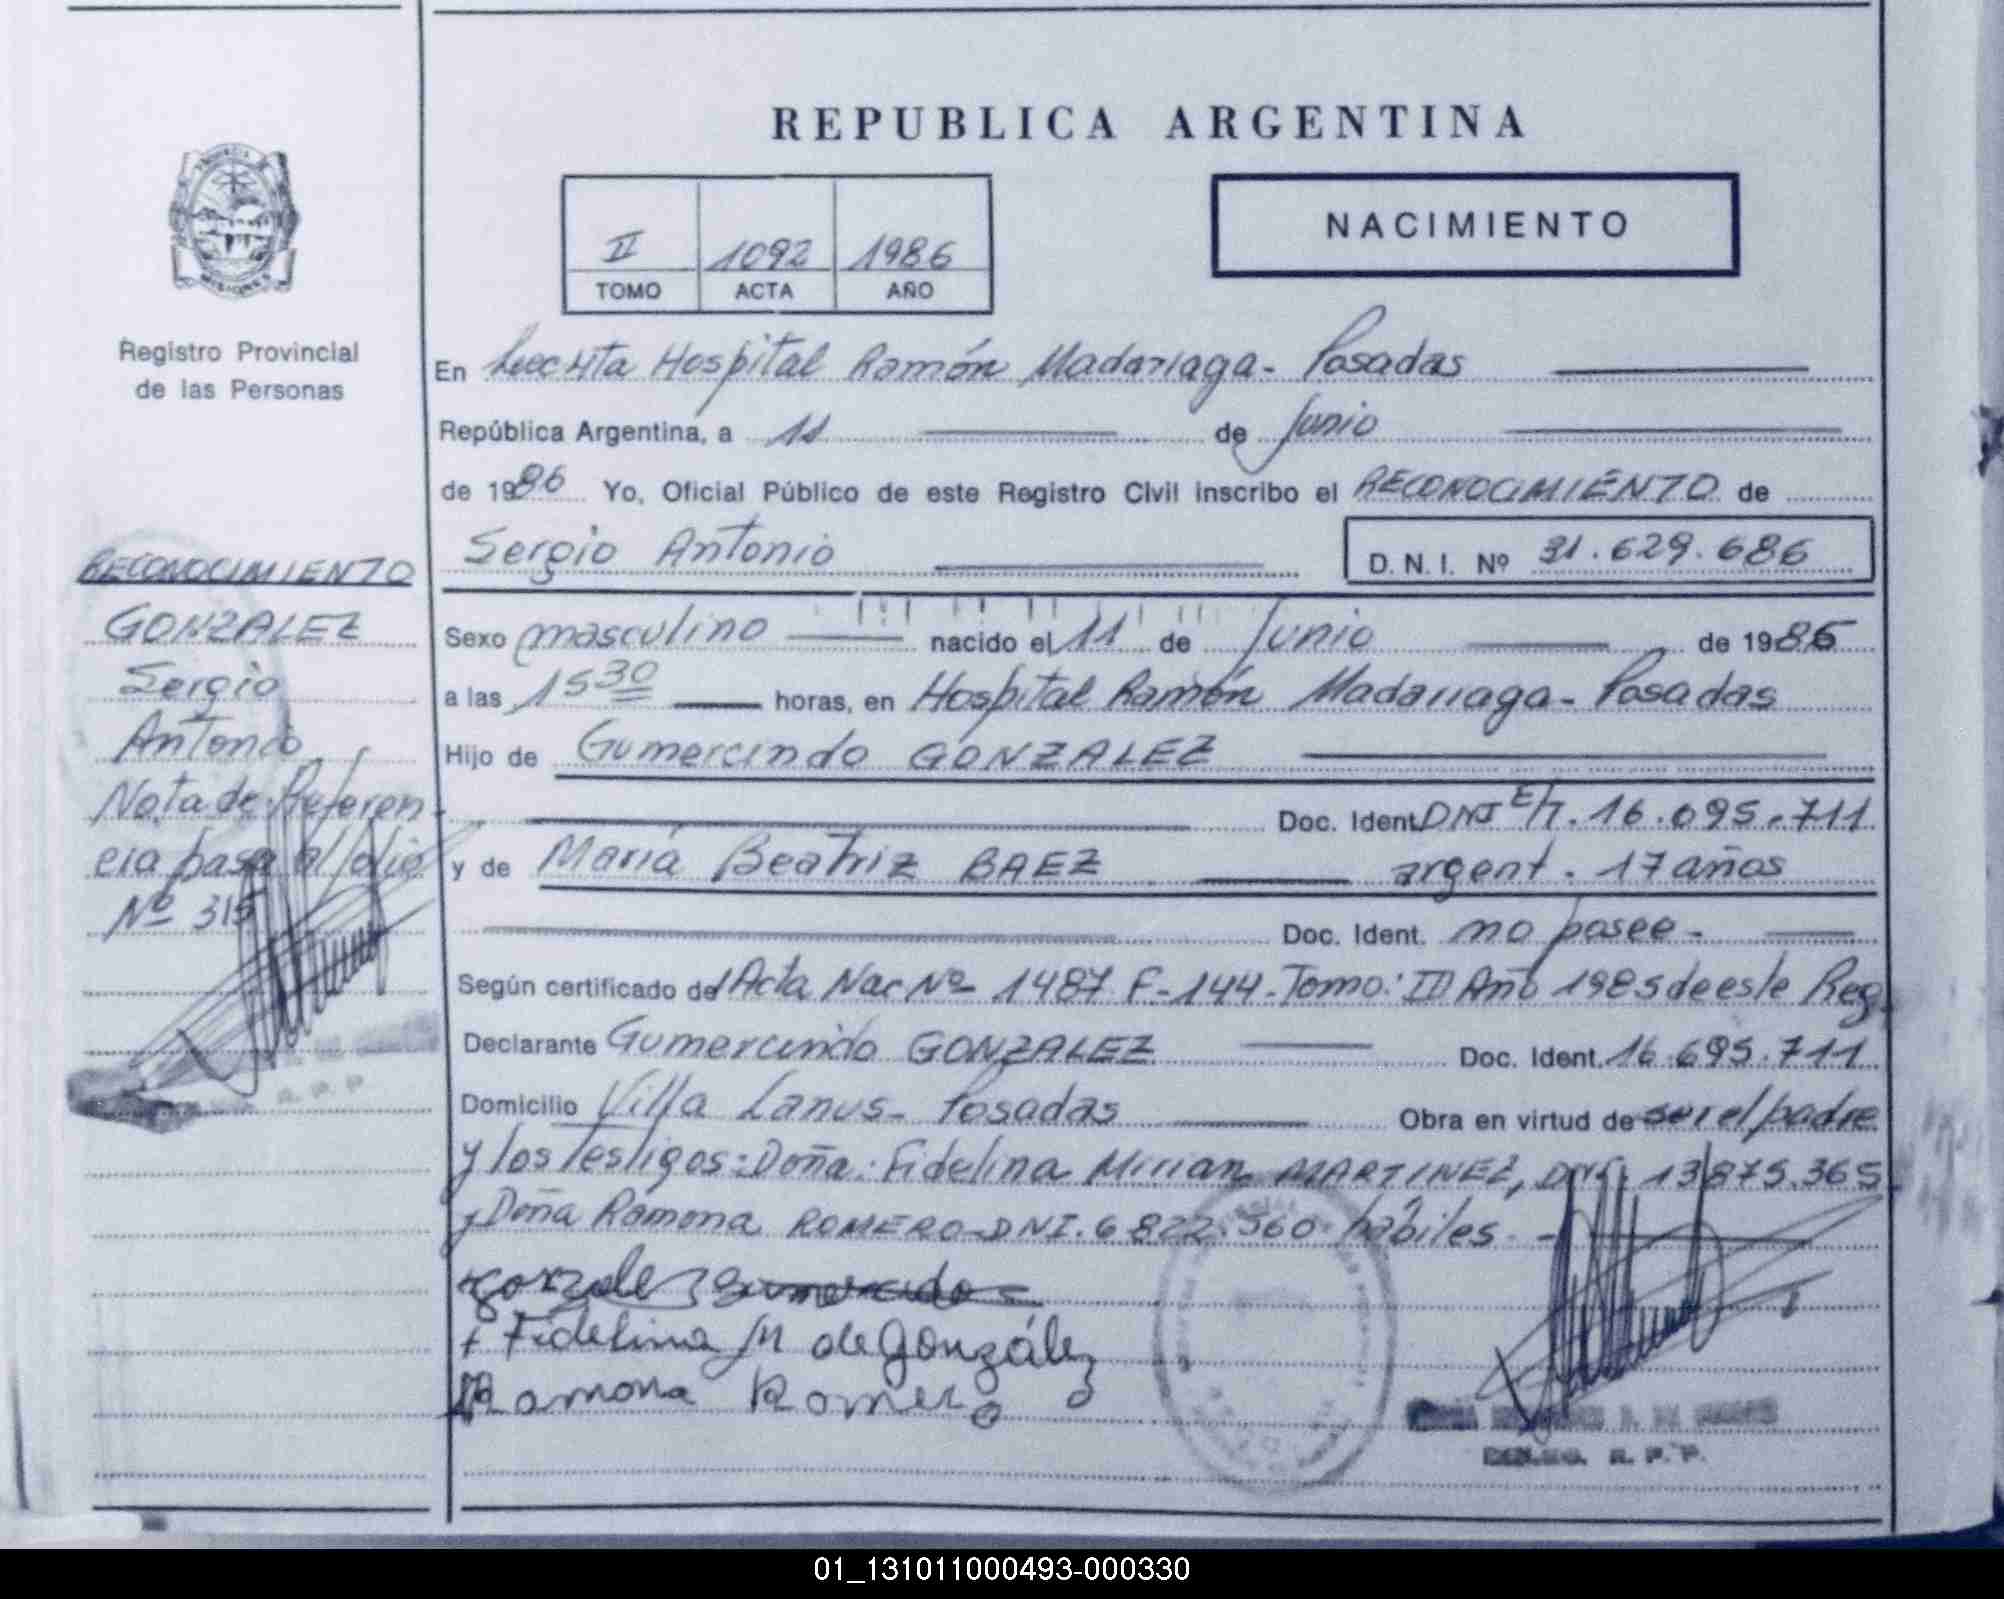 REPUBLICA ARGENTINA
NACIMIENTO
II 1092 1986
TOMO ACTA AÑO
Registro Provincial
de las Personas
En Hospital Ramón Madariaga - Posadas
República Argentina, a 11 de Junio
de 1986 Yo, Oficial Público de este Registro Civil inscribo el RECONOCIMIENTO de
Sergio Antonio
D. N. I. Nº 31.629.686
Sexo masculino nacido el 11 de Junio de 1985
a las 15 30 horas, en Hospital Ramón Madariaga - Posadas
Hijo de Gumercindo GONZALEZ
Doc. Ident. DNI E/T. 16.095.711
y de María Beatriz BAEZ argent. 17 años
Doc. Ident. no posee -
Según certificado de Acta Nac Nº 1487 F-144-Tomo: III Año 1985 de este Reg.
Declarante Gumercindo GONZALEZ Doc. Ident. 16.695.711
Domicilio Villa Lanus - Posadas Obra en virtud de ser el padre
y los testigos: Doña: Fidelina Mirian MARTINEZ, DNI. 13875.365
y Doña Ramona ROMERO-DNI. 6822.560 hábiles. -
Gonzalez Gumercindo
+ Fidelina M de González
Ramona Romero
R. P. P.
RECONOCIMIENTO
GONZALEZ
Sergio
Antonio
Nota de Referen-
cia pasa al folio
Nº 315
R. P. P.
01_131011000493-000330